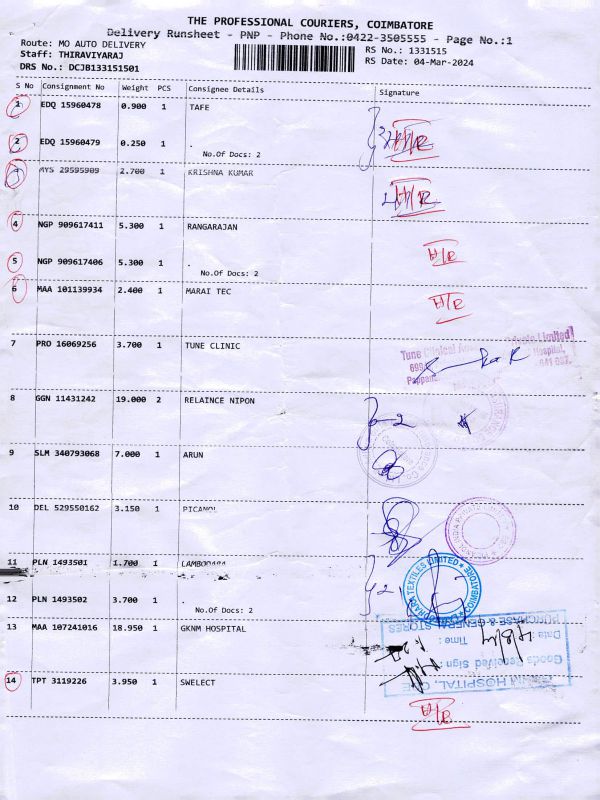 THE PROFESSIONAL COURIERS, COIMBATORE
Delivery Runsheet - PNP - Phone No.:0422-3505555 - Page No.:1
Route: MO AUTO DELIVERY RS No.: 1331515
Staff: THIRAVIYARAJ RS Date: 04-Mar-2024
DRS No.: DCJB133151501
S No Consignment No Weight PCS Consignee Details Signature
1 EDQ 15960478 0.900 1 TAFE
2 EDQ 15960479 0.250 1 .
No.Of Docs: 2
A/R
3 AYS 29595909 2.700 1 KRISHNA KUMAR
A/R
4 NGP 909617411 5.300 1 RANGARAJAN
5 NGP 909617406 5.300 1 .
No.Of Docs: 2
A/R
6 MAA 101139934 2.400 1 MARAI TEC
A/R
7 PRO 16069256 3.700 1 TUNE CLINIC
Tune Clinical Limited
Hospital,
8 GGN 11431242 19.000 2 RELAINCE NIPON
9 SLM 340793068 7.000 1 ARUN
10 DEL 529550162 3.150 1 PICANOL
11 PLN 1493501 1.700 1 LAMBODARA
TEXTILES LIMITED
COIMBATORE
12 PLN 1493502 3.700 1
No.Of Docs: 2
13 MAA 107241016 18.950 1 GKNM HOSPITAL
PURCHASE & GENERAL STORES
Date: Time :
Goods Received Sign :
HOSPITAL,
14 TPT 3119226 3.950 1 SWELECT
A/R